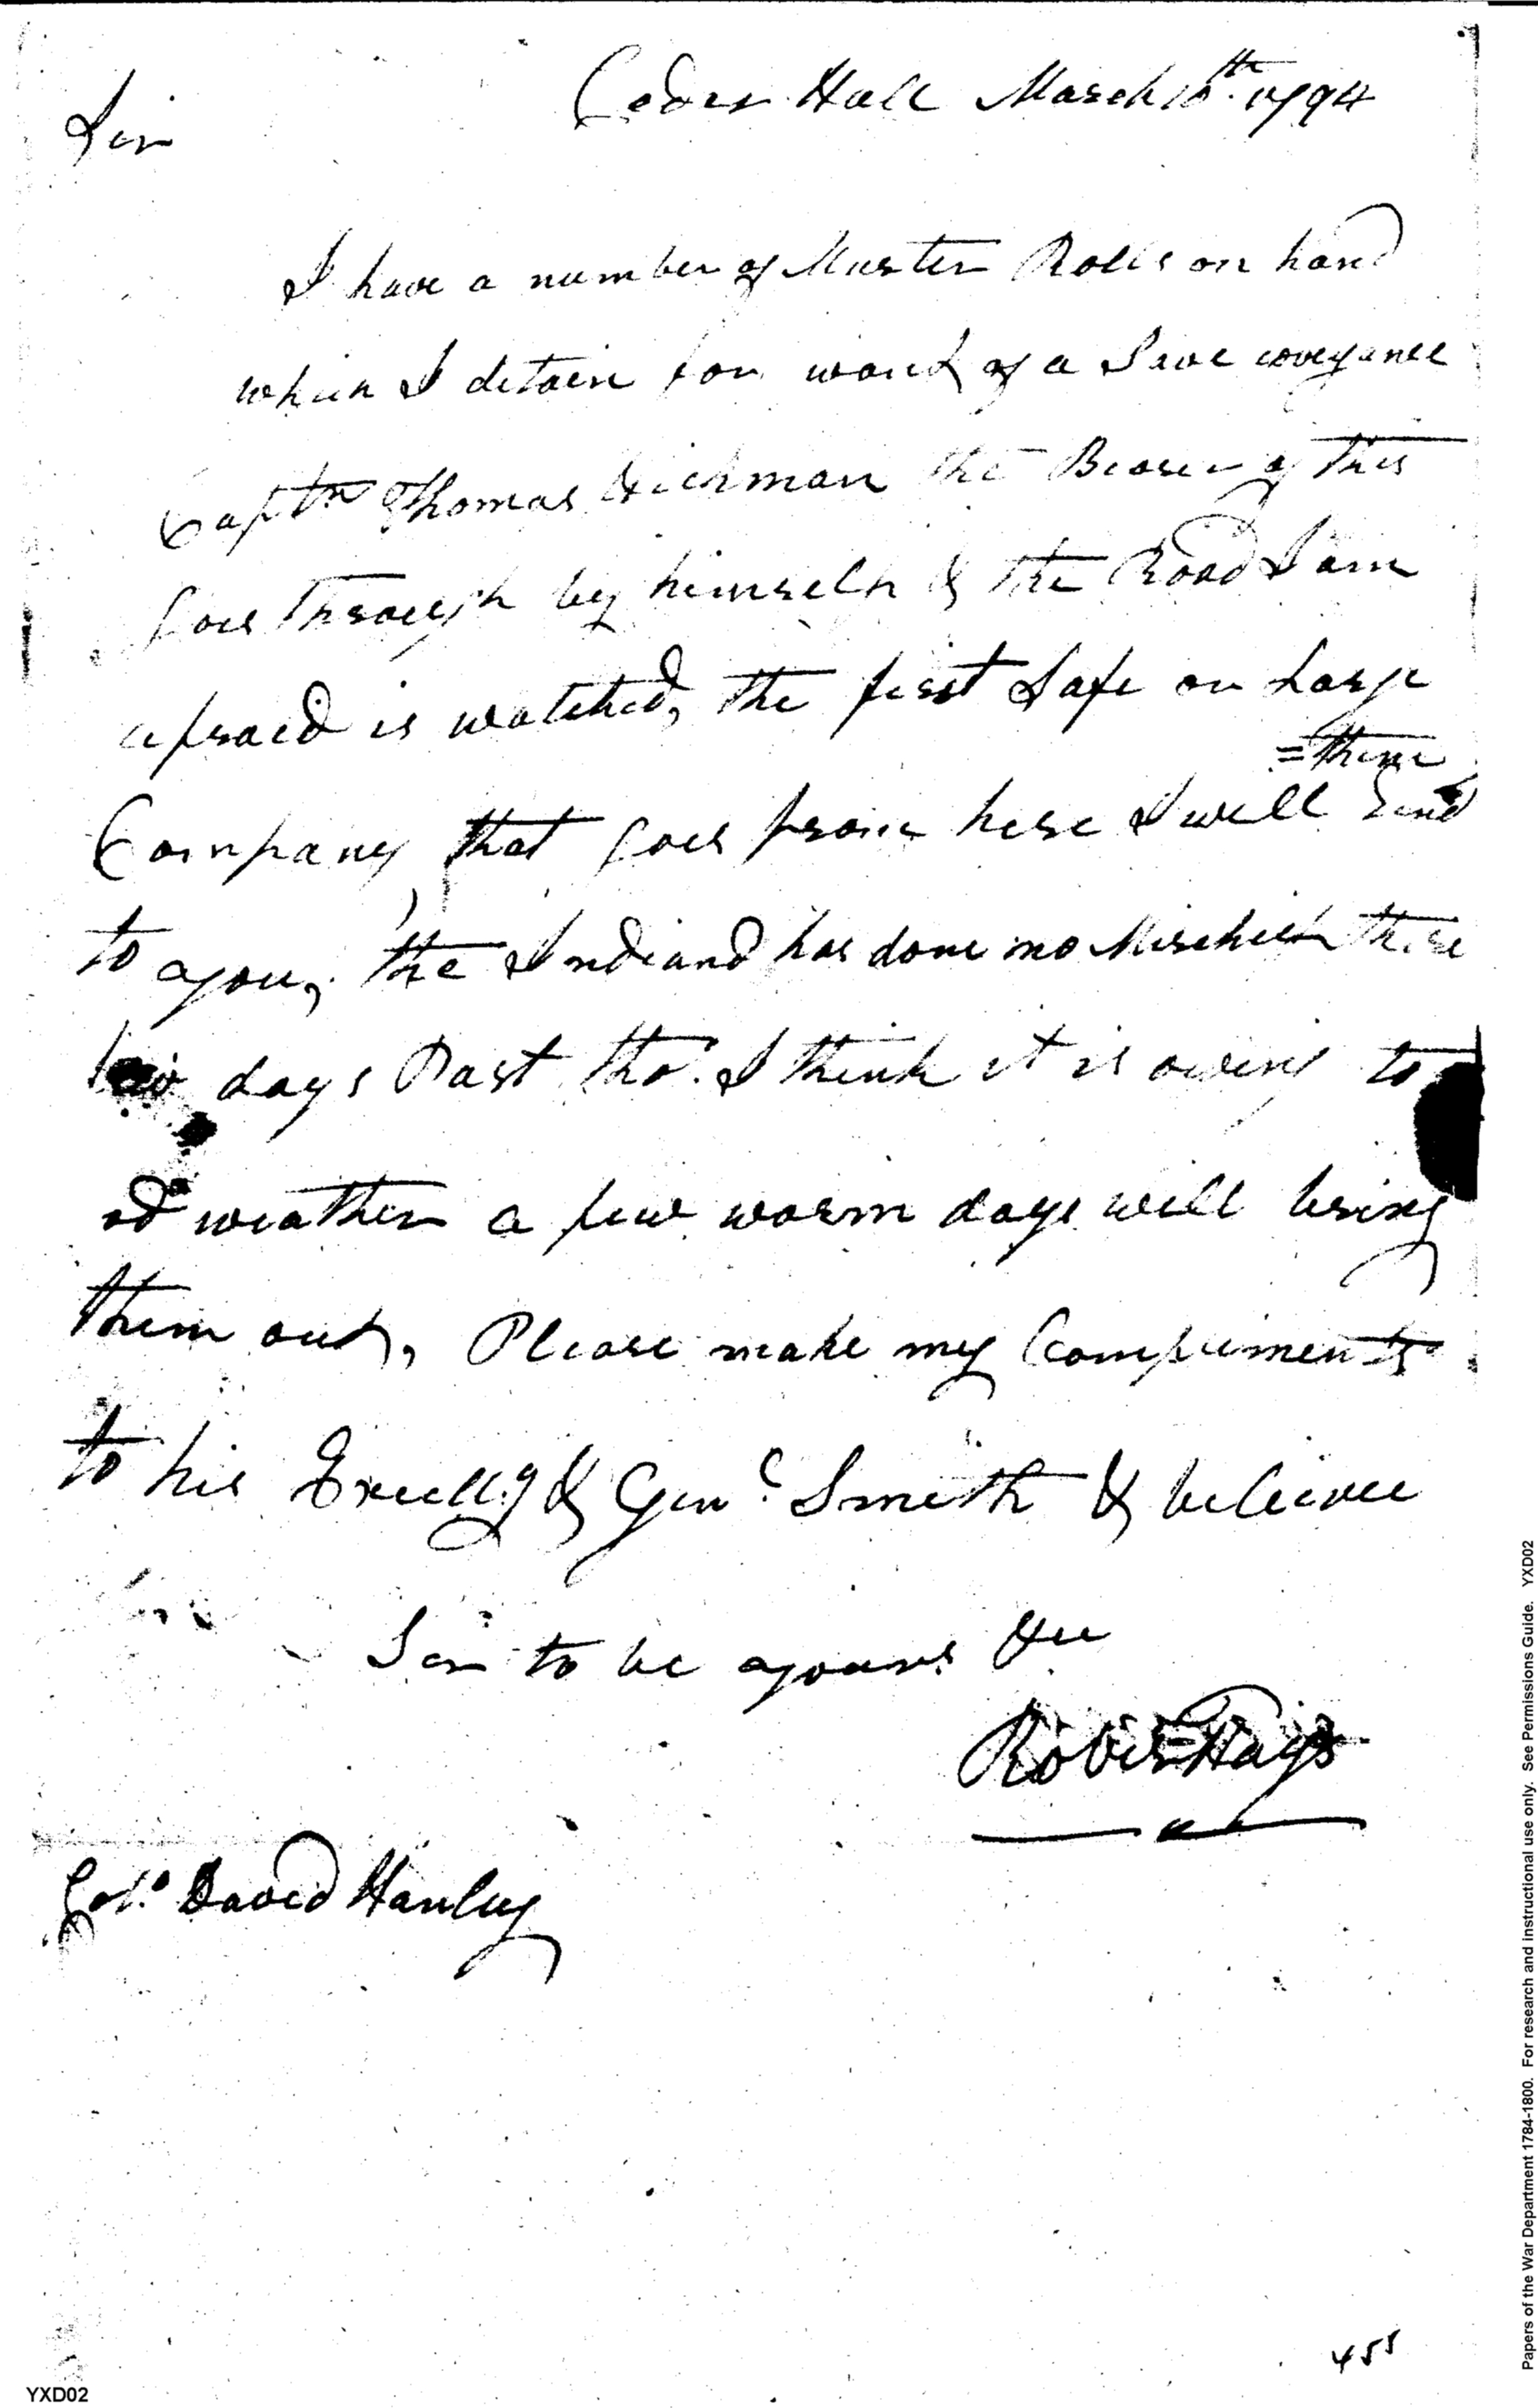 Ceder Hall March 10th. 1794
Sir
I have a number of Muster Rolls on hand
which I detain for want of a Save coveyance
Captn Thomas Hickman the Bearer of this
goes through by himself & the Road I am
afraid is watched, the first Safe or Large
=them
Company that goes from here I will Send
to you, the Indians has done no Mischief these
few days Past tho. I think it is owing to
weather a few warm days will bring
them out, Please make my Compliments
to his Excelly & Genl Smith & believe
Sir to be yours &c
Robert Hays
Colo. David Henley
455
YXD02
Papers of the War Department 1784-1800. For research and instructional use only. See Permissions Guide. YXD02